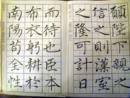 願陛下親之
信之則漢室
之隆可計日
而待也臣本
布衣躬耕於
南陽苟全性